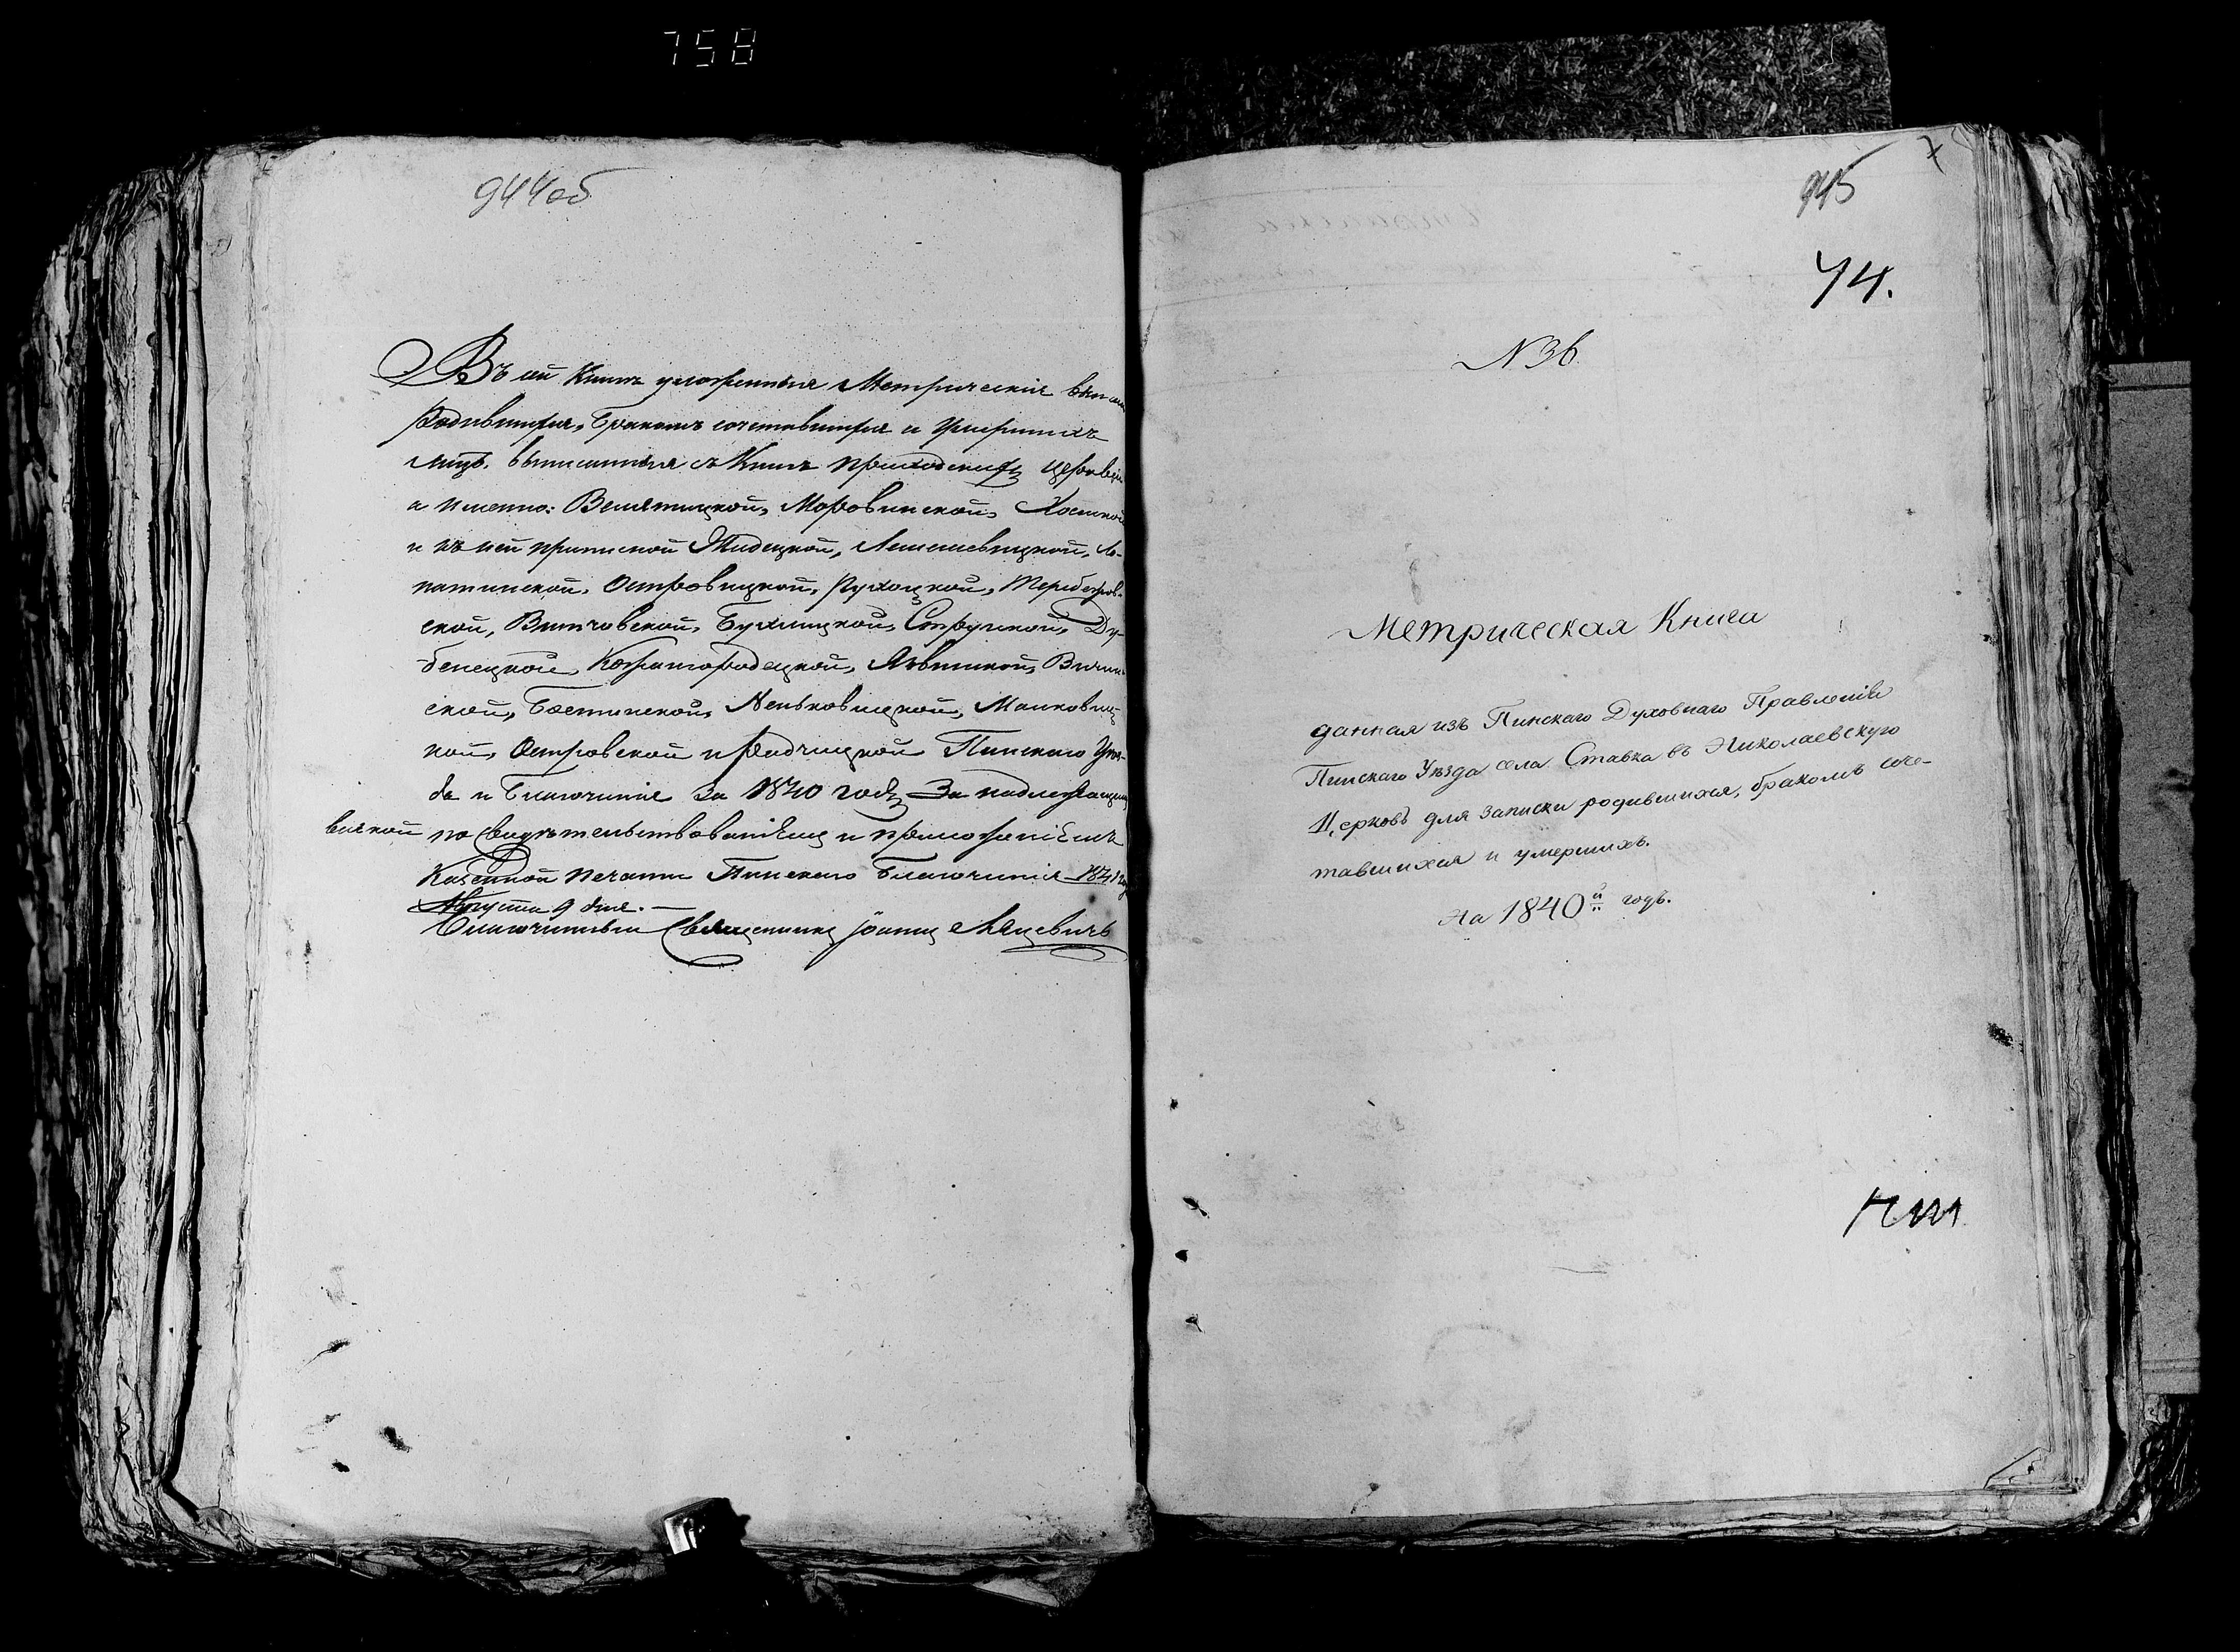 758
944об
Въ сей Книгѣ уложенныя Метрическія
Родившихся, Бракомъ сочетавшихся и Умершихъ
лицъ, выписанныя съ Книгъ приходскихъ церквей
а именно: Велятицкой, Моровинской, Хоинской
и къ ней приписной Жидецкой, Лемешевицкой, Ло-
патинской, Островицкой, Пухоцкой, Теребежов-
ской, Витчовской, Бухлицкой, Струнской, Ду-
бенецкой, Кожангородецкой, Лѣвинской,
ской, Бостынской, Неньковицкой, Маньковиц-
кой, Островской и Радчицкой Пинскаго Уѣз-
да и Благочинія за 1840 годъ За надлежащимъ
по Свидѣтельствованіемъ и приложеніемъ
Казенной печати Пинскаго Благочинія 1841
Августа 9 дня.
Благочинный Священникъ Іоаннъ Мацевичъ
945
74.
N 36.
Метрическая Книга
данная изъ Пинскаго Духовнаго Правленія
Пинскаго Уѣзда села Ставка въ Николаевскую
Церковь для записки родившихся, бракомъ соче-
тавшихся и умершихъ.
На 1840й годъ.